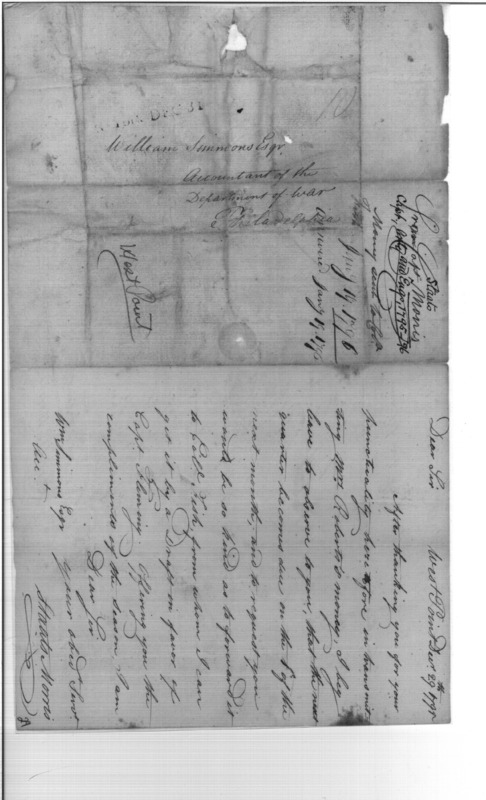 Dec 31
William Simmons Esqr.
Accountant of the
Department of War
Philadelphia
West Point
Staats
Morris
1795
Money sent to
Jany 19 1796
Answered Jany 19
West Point Decr 29th 1795
Dear Sir
After thanking you for your
punctuality heretofore in transmit
ting Mrs. Roberts's money, I beg
leave to observe to you, that the next
quarter becomes due on the 1st of the
next month, and to request you
would be so kind as to forward it
to Collo Fish, from whom I can
get it by a Draft in favor of
Capt. Fleming. Offering you the
compliments of the season I am
Dear Sir
your obedt Servt
Staats Morris
Wm Simmons Esqr
Acc. +